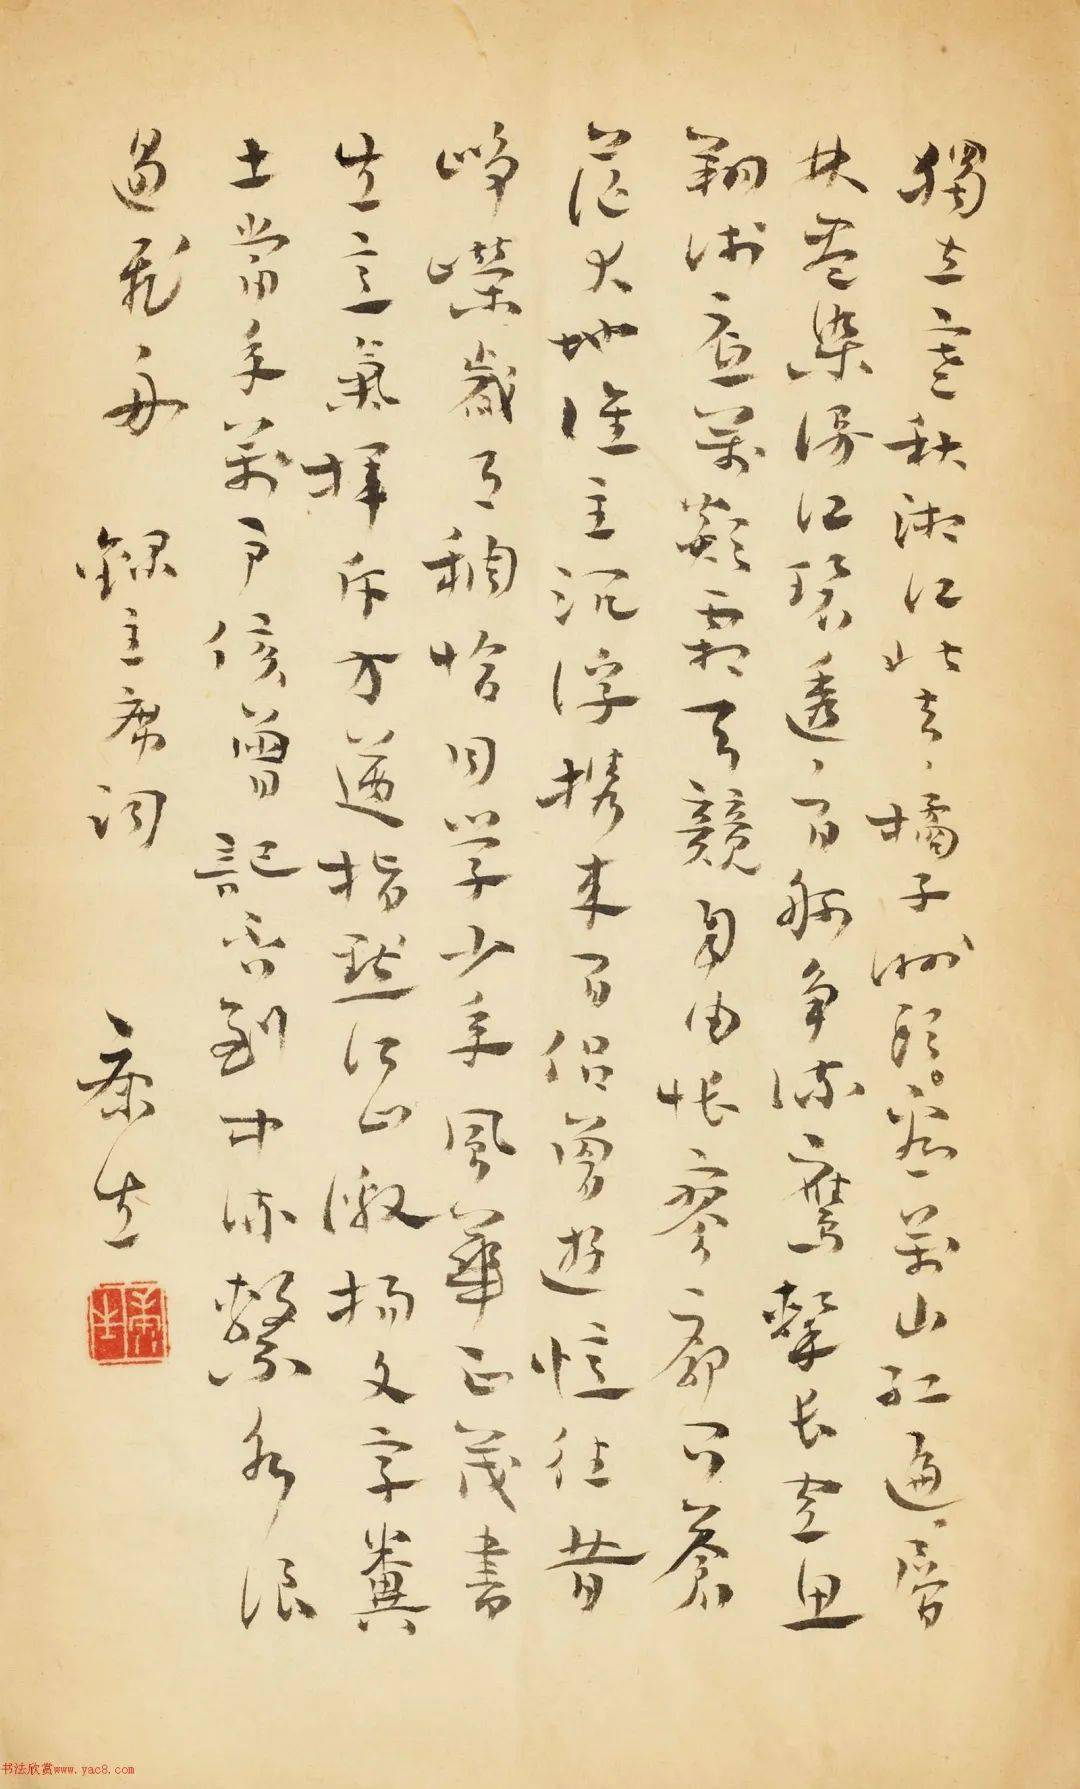 獨立寒秋湘江北去、橘子洲頭。看萬山紅遍、層
林盡染漫江碧透、百舸争流鷹擊长空魚
翔淺底萬類霜天競自由悵寥廓问蒼
茫大地誰主沉浮携來百侣曾遊憶往昔
崢嶸歲月稠恰同学少年風華正茂書
生意氣揮斥方遒指點江山激揚文字糞
土當年萬户侯曾記否到中流擊水浪
遏飛舟 録主席詞 康生
康生
书法欣赏www.yac8.com